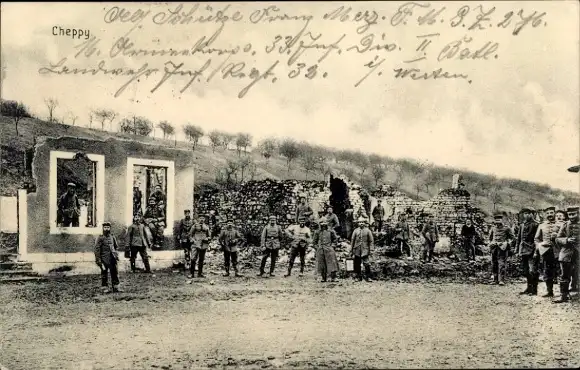 Cheppy
Schütze Franz Merz
16. Armeekorps. 33. Inf. Div. II Batl.
Landwehr Inf. Regt. 32. i/ Westen